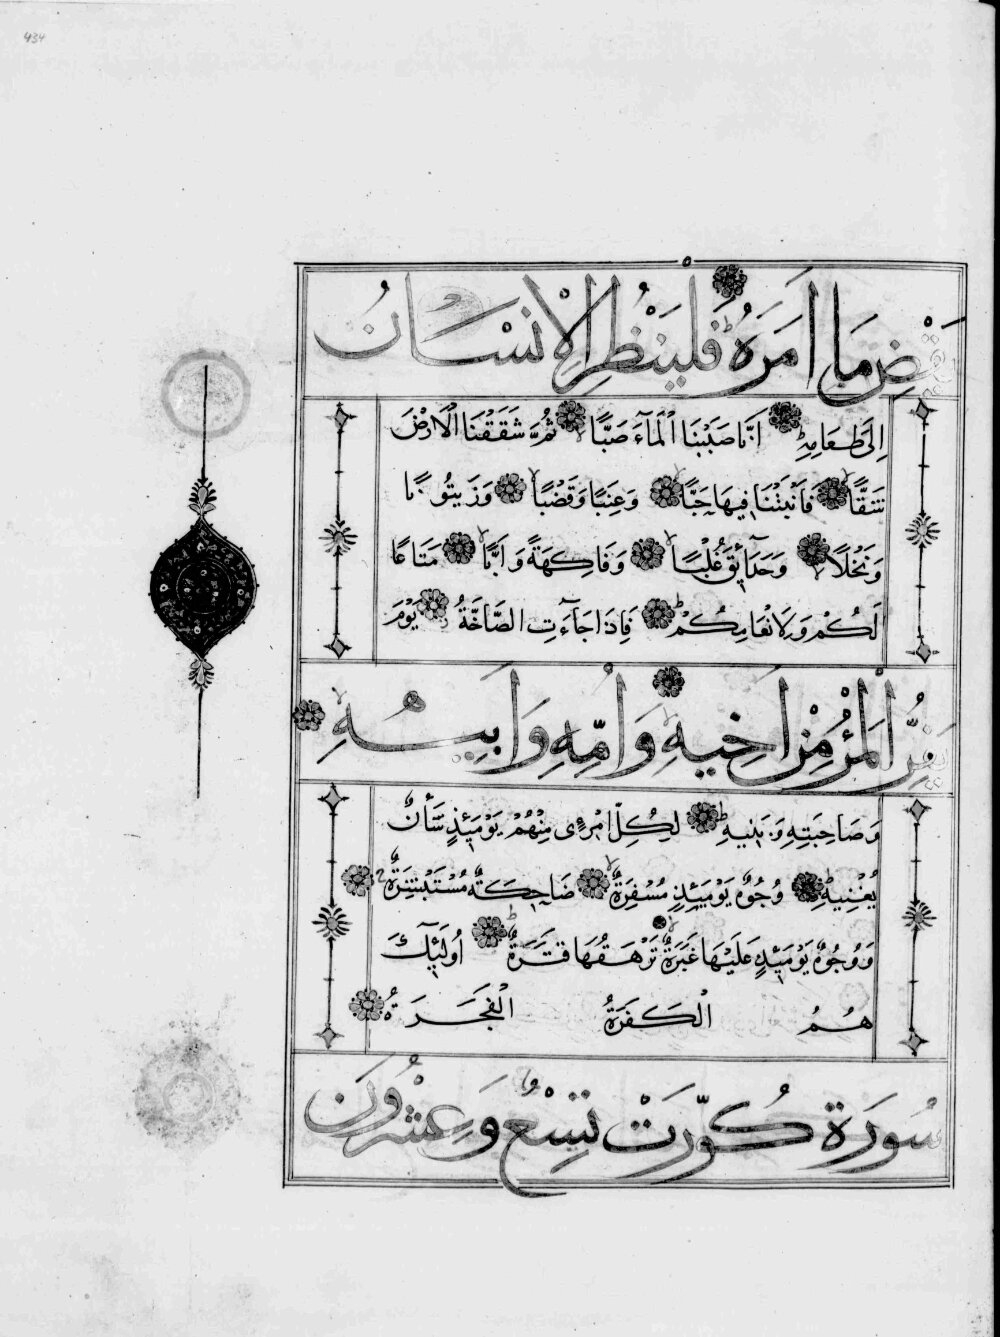 434
يَقْضِ مَا اَمَرَهُ فَلْيَنْظُرِ الْاِنْسَانُ
اِلَى طَعَامِهِ اَنَّا صَبَبْنَا الْمَآءَ صَبًّا ثُمَّ شَقَقْنَا الْاَرْضَ
شَقًّا فَاَنْبَتْنَا فِيهَا حَبًّا وَعِنَبًا وَقَضْبًا وَزَيْتُونًا
وَنَخْلًا وَحَدَآئِقَ غُلْبًا وَفَاكِهَةً وَاَبًّا مَتَاعًا
لَكُمْ وَلِاَنْعَامِكُمْ فَاِذَا جَآءَتِ الصَّاخَّةُ يَوْمَ
يَفِرُّ الْمَرْءُ مِنْ اَخِيهِ وَاُمِّهِ وَاَبِيهِ
وَصَاحِبَتِهِ وَبَنِيهِ لِكُلِّ امْرِئٍ مِنْهُمْ يَوْمَئِذٍ شَأْنٌ
يُغْنِيهِ وُجُوهٌ يَوْمَئِذٍ مُسْفِرَةٌ ضَاحِكَةٌ مُسْتَبْشِرَةٌ
وَوُجُوهٌ يَوْمَئِذٍ عَلَيْهَا غَبَرَةٌ تَرْهَقُهَا قَتَرَةٌ اُولَئِكَ
هُمُ الْكَفَرَةُ الْفَجَرَةُ
سُورَةُ كُوِّرَتْ تِسْعٌ وَعِشْرُونَ